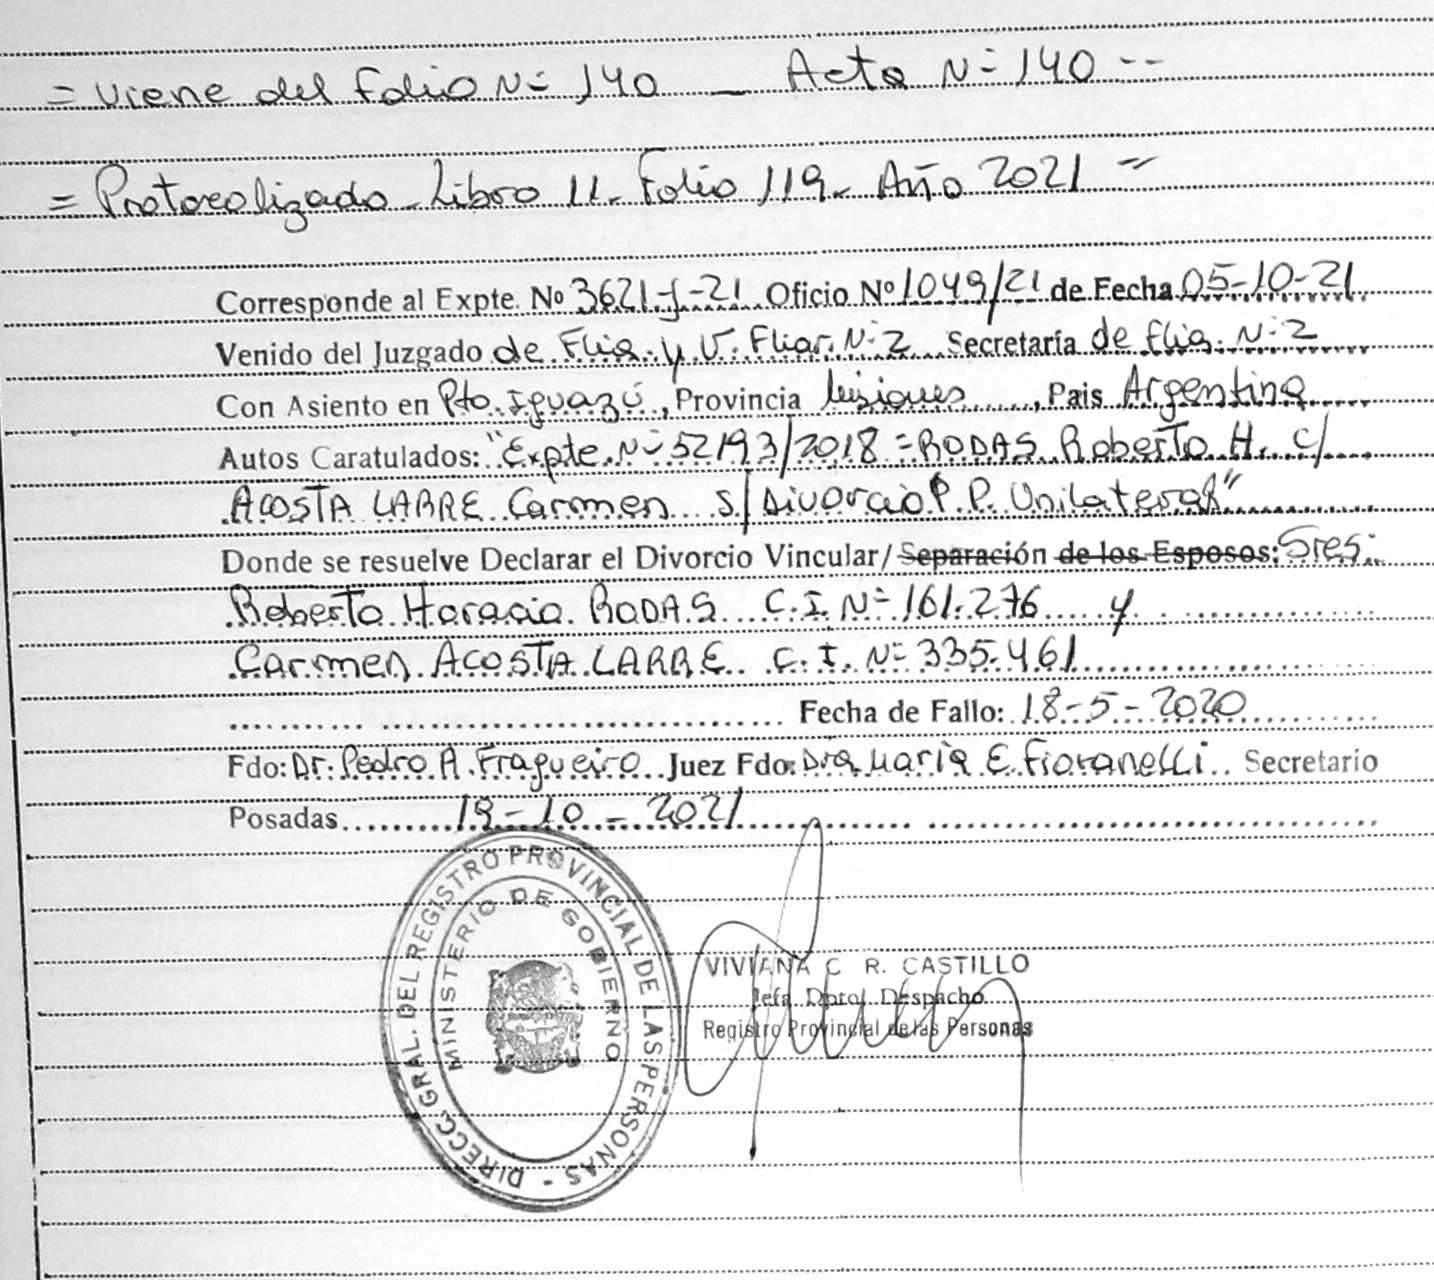 = Viene del Folio N= 140 — Acta N= 140 --
= Protocolizado - Libro 11 - Folio 119 - Año 2021 =
Corresponde al Expte. Nº 3621-J-21 Oficio Nº 1049/21 de Fecha 05-10-21
Venido del Juzgado de Flia. y V. Fliar. N=2 Secretaría de flia. N=2
Con Asiento en Pto. Iguazú, Provincia Misiones, Pais Argentina
Autos Caratulados: "Expte. N= 52193/2018 = RODAS Roberto H. C/
ACOSTA LARRE Carmen S/ Divorcio P. P. Unilateral"
Donde se resuelve Declarar el Divorcio Vincular/Separación de los Esposos: Sres:
Roberto Horacio RODAS C.I. N= 161.276 y
Carmen ACOSTA LARRE C.I. N= 335.461
Fecha de Fallo: 18-5-2020
Fdo: Dr. Pedro A. Fragueiro Juez Fdo: Dra María E. Fioranelli Secretario
Posadas 19-10-2021
DIRECC. GRAL. DEL REGISTRO PROVINCIAL DE LAS PERSONAS -
MINISTERIO DE GOBIERNO
VIVIANA C R. CASTILLO
Jefa Dpto. Despacho
Registro Provincial de las Personas